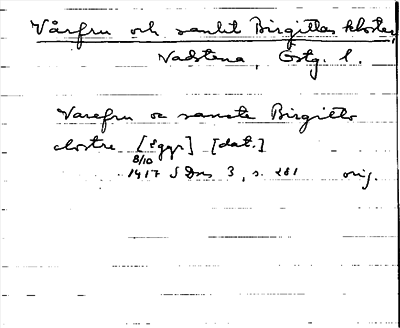 Vårfru och sankt Birgittas kloster,
Vadstena, Östg. l.
Varefru oc sancte Birgitto
clostre [Egge] [dat.]
8/10
1417 SDns 3, s. 281 orig.